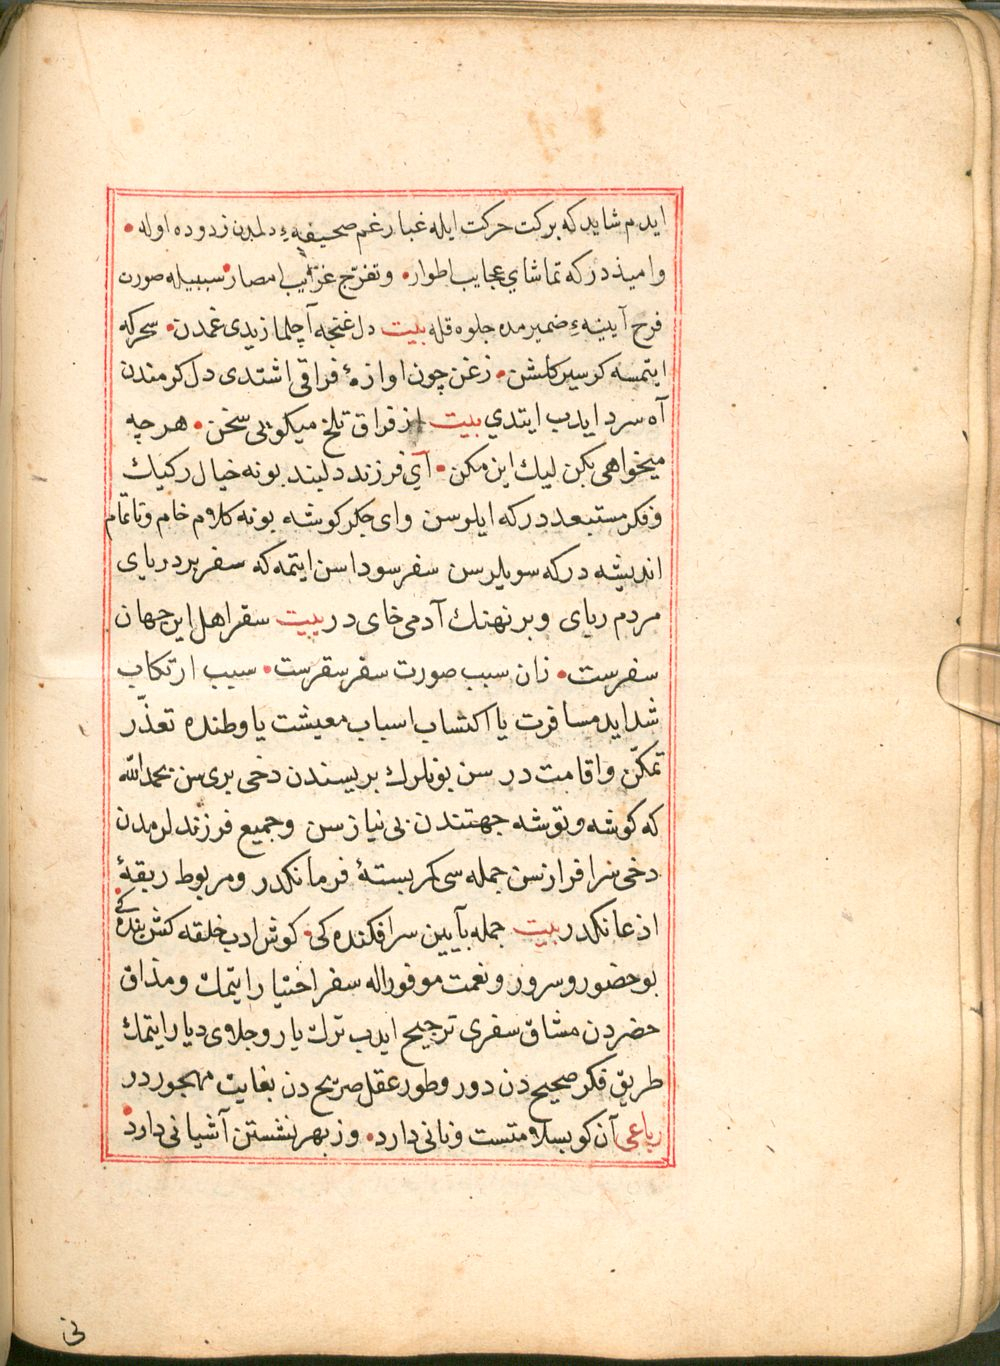 ايدم شايد كه بركت حركت ايله غبار غم صحيفهٔ دلمدن زدوده اوله •
و اميذدر كه تماشاي عجايب اطوار • و تفرّج غرايب امصار سببيله صورت
فرح آيينهٔ ضميرمده جلوه قله بيت دل غنجه آچلمازيدى غمدن • سحر كه
ايتمسه كر سير كلشن • زغن چون اوازهٔ فراقى اشتدى دل كرمندن
آه سرد ايدب ايتدي بيت از فراق تلخ ميكويى سخن • هر چه
ميخواهى بكن ليك اين مكن • آي فرزند دلبند بو نه خيال ركيك
و فكر مستبعددر كه ايلرسن واى جكر كوشه بو نه كلام خام و ناتمام
انديشه در كه سويلرسن سفر سوداسن ايتمه كه سفر بر درياى
مردم رباى و بر نهنك آدمى خاى در بيت سقر اهل اين جهان
سفرست • زان سبب صورت سفر سقرست • سبب ارتكاب
شدايد مسافرت يا اكتساب اسباب معيشت يا وطنده تعذّر
تمكّن و اقامت در سن بونلرك بريسندن دخى برى سن بحمد الله
كه كوشه و توشه جهتندن بى نيازسن و جميع فرزندلرمدن
دخى سرافرازسن جمله سى كمر بستهٔ فرمانكدر و مربوط ربقهٔ
اذعانكدر بيت جمله بآيين سرافكنده كى • كوش ادب خلقه كش بنده كى
بو حضور و سرور و نعمت موفور اله سفر اختيار ايتمك و مذاق
حضردن مشاق سفرى ترجيح ايدب ترك يار و جلاى ديار ايتمك
طريق فكر صحيح دن دور و طور عقل صريح دن بغايت مهجور در
رباعى آن كو بسلامتست و نانى دارد • وز بهر نشستن آشيانى دارد
نى